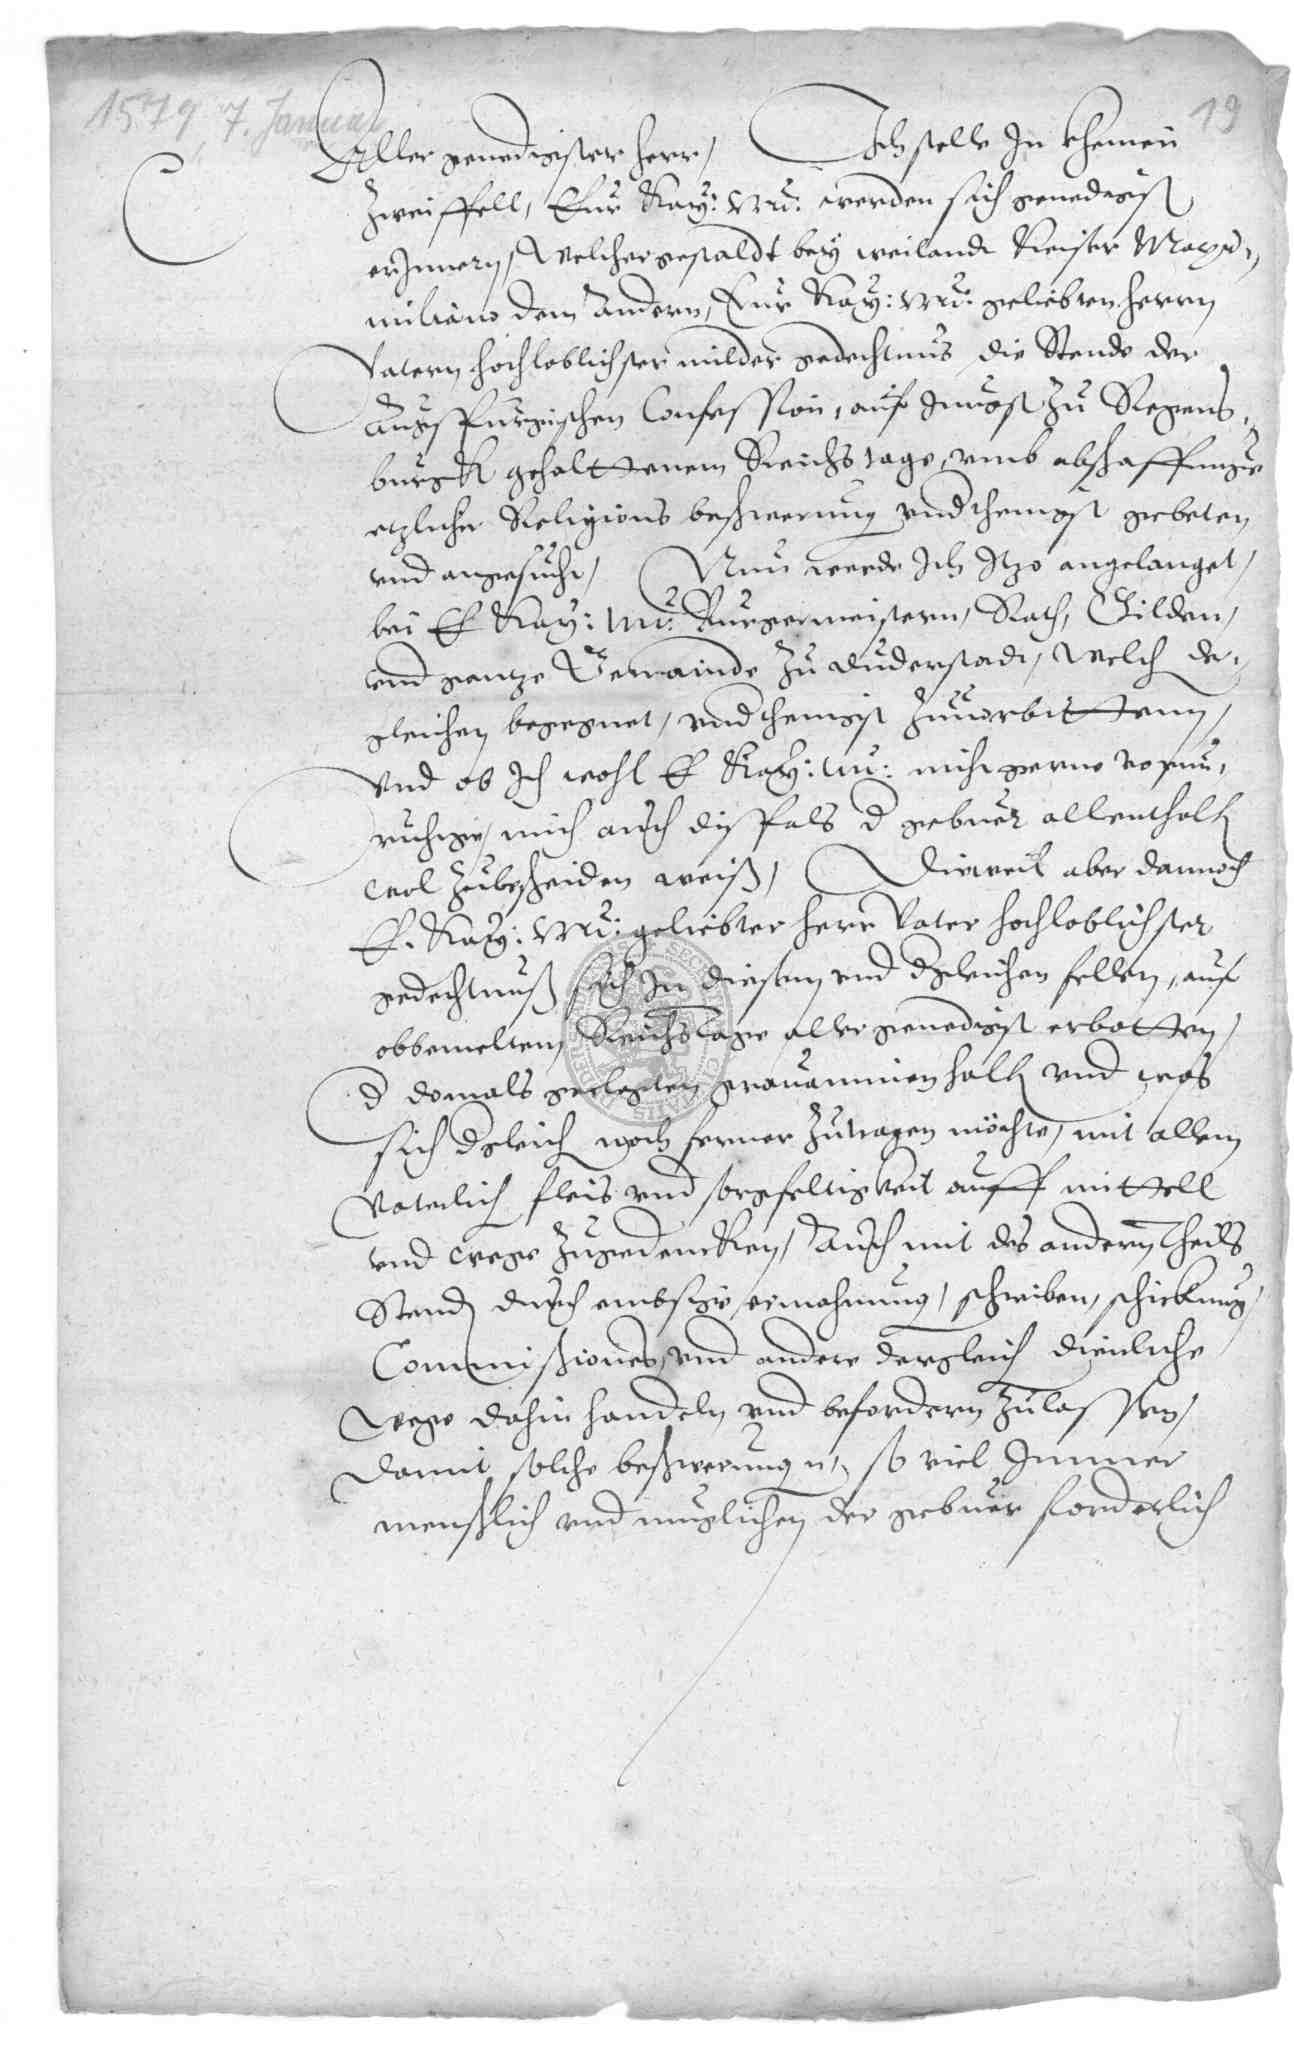 1579, 7. Januar
19
Aller genedigister Herr, Ich stelle In kheinen
Zweiffell, Eur Kay: Mt: werden sich genedigst
erJnnern, Welchergestaldt bey weilandt Keiser Maxi,,
miliano dem Andern, Eur Kay: Mt: geliebten herrn
Vatern hochloblichster milder gedechtnus die Stende der
Augspurgischen Confession, auf Jungst zu Regens,,
burgk gehalttenem Reichstage, vmb abschaffunge
etzlicher Religions beschwerung vnderthenigst gebeten
vnd angesucht, Nun werde Ich Itzo angelanget,
bei E Kay: Mt: Burgermeistern, Rath, Gilden,
vnd gantze Gemainde zu Duderstadt, Welch der,,
gleichen begegnet, vnderthenigst zuuorbittenn,
Vnd ob Ich wohl E Kay: Mt: nicht gerne vorun,,
ruhige, mich auch disfals d gebuer allenthalb
wol zubescheiden weiß, Dieweil aber dannoch
E. Kay: Mt: geliebter herr Vater hochloblichster
gedechtnuß sich In diesem vnd dgleichen fellen, auf
obbemeltem Reichstage allergenedigst erbotten,
d domals geclagten grauaminen halb vnd was
sich dgleich noch ferner zutragen möchte, mit allem
Vaterlich fleis vnd sorgfeltigkeit auff mittell
vnd wege zugedencken, Auch mit des andern Theils
Stend durch embsige ermahnung, schreiben, schickung,
Commissiones, vnd andere dergleich dienliche
wege dahin handeln vnd befordern zulassen,
damit solche beschwerungn, so viel Immer
menschlich vnd muglichen der gebuer forderlich